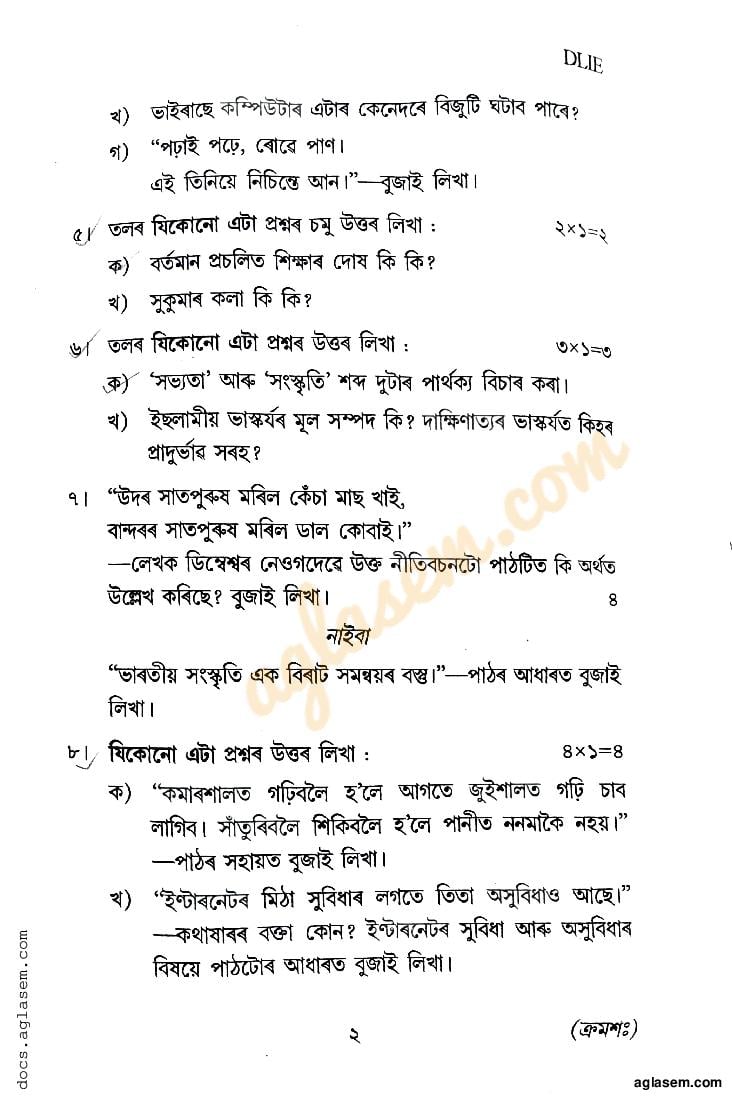 DLIE
খ) ভাইৰাছে কম্পিউটাৰ এটাৰ কেনেদৰে বিজুটি ঘটাব পাৰে?
গ) “পঢ়াই পঢ়ে, ৰোৱে পাণ।
এই তিনিয়ে নিচিন্তে আন।”—বুজাই লিখা।
৫। তলৰ যিকোনো এটা প্ৰশ্নৰ চমু উত্তৰ লিখা : ২×১=২
ক) বৰ্তমান প্ৰচলিত শিক্ষাৰ দোষ কি কি?
খ) সুকুমাৰ কলা কি কি?
৬। তলৰ যিকোনো এটা প্ৰশ্নৰ উত্তৰ লিখা : ৩×১=৩
ক) ‘সভ্যতা’ আৰু ‘সংস্কৃতি’ শব্দ দুটাৰ পাৰ্থক্য বিচাৰ কৰা।
খ) ইছলামীয় ভাস্কৰ্যৰ মূল সম্পদ কি? দাক্ষিণাত্যৰ ভাস্কৰ্যত কিহৰ
প্ৰাদুৰ্ভাৱ সৰহ?
৭। “উদৰ সাতপুৰুষ মৰিল কেঁচা মাছ খাই,
বান্দৰৰ সাতপুৰুষ মৰিল ডাল কোবাই।”
—লেখক ডিম্বেশ্বৰ নেওগদেৱে উক্ত নীতিবচনটো পাঠটিত কি অৰ্থত
উল্লেখ কৰিছে? বুজাই লিখা। ৪
নাইবা
“ভাৰতীয় সংস্কৃতি এক বিৰাট সমন্বয়ৰ বস্তু।”—পাঠৰ আধাৰত বুজাই
লিখা।
৮। যিকোনো এটা প্ৰশ্নৰ উত্তৰ লিখা : ৪×১=৪
ক) “কমাৰশালত গঢ়িবলৈ হ’লে আগতে জুইশালত গঢ়ি চাব
লাগিব। সাঁতুৰিবলৈ শিকিবলৈ হ’লে পানীত ননমাকৈ নহয়।”
—পাঠৰ সহায়ত বুজাই লিখা।
খ) “ইণ্টাৰনেটৰ মিঠা সুবিধাৰ লগতে তিতা অসুবিধাও আছে।”
—কথাষাৰৰ বক্তা কোন? ইণ্টাৰনেটৰ সুবিধা আৰু অসুবিধাৰ
বিষয়ে পাঠটোৰ আধাৰত বুজাই লিখা।
২ (ক্ৰমশঃ)
aglasem.com
docs.aglasem.com
aglasem.com